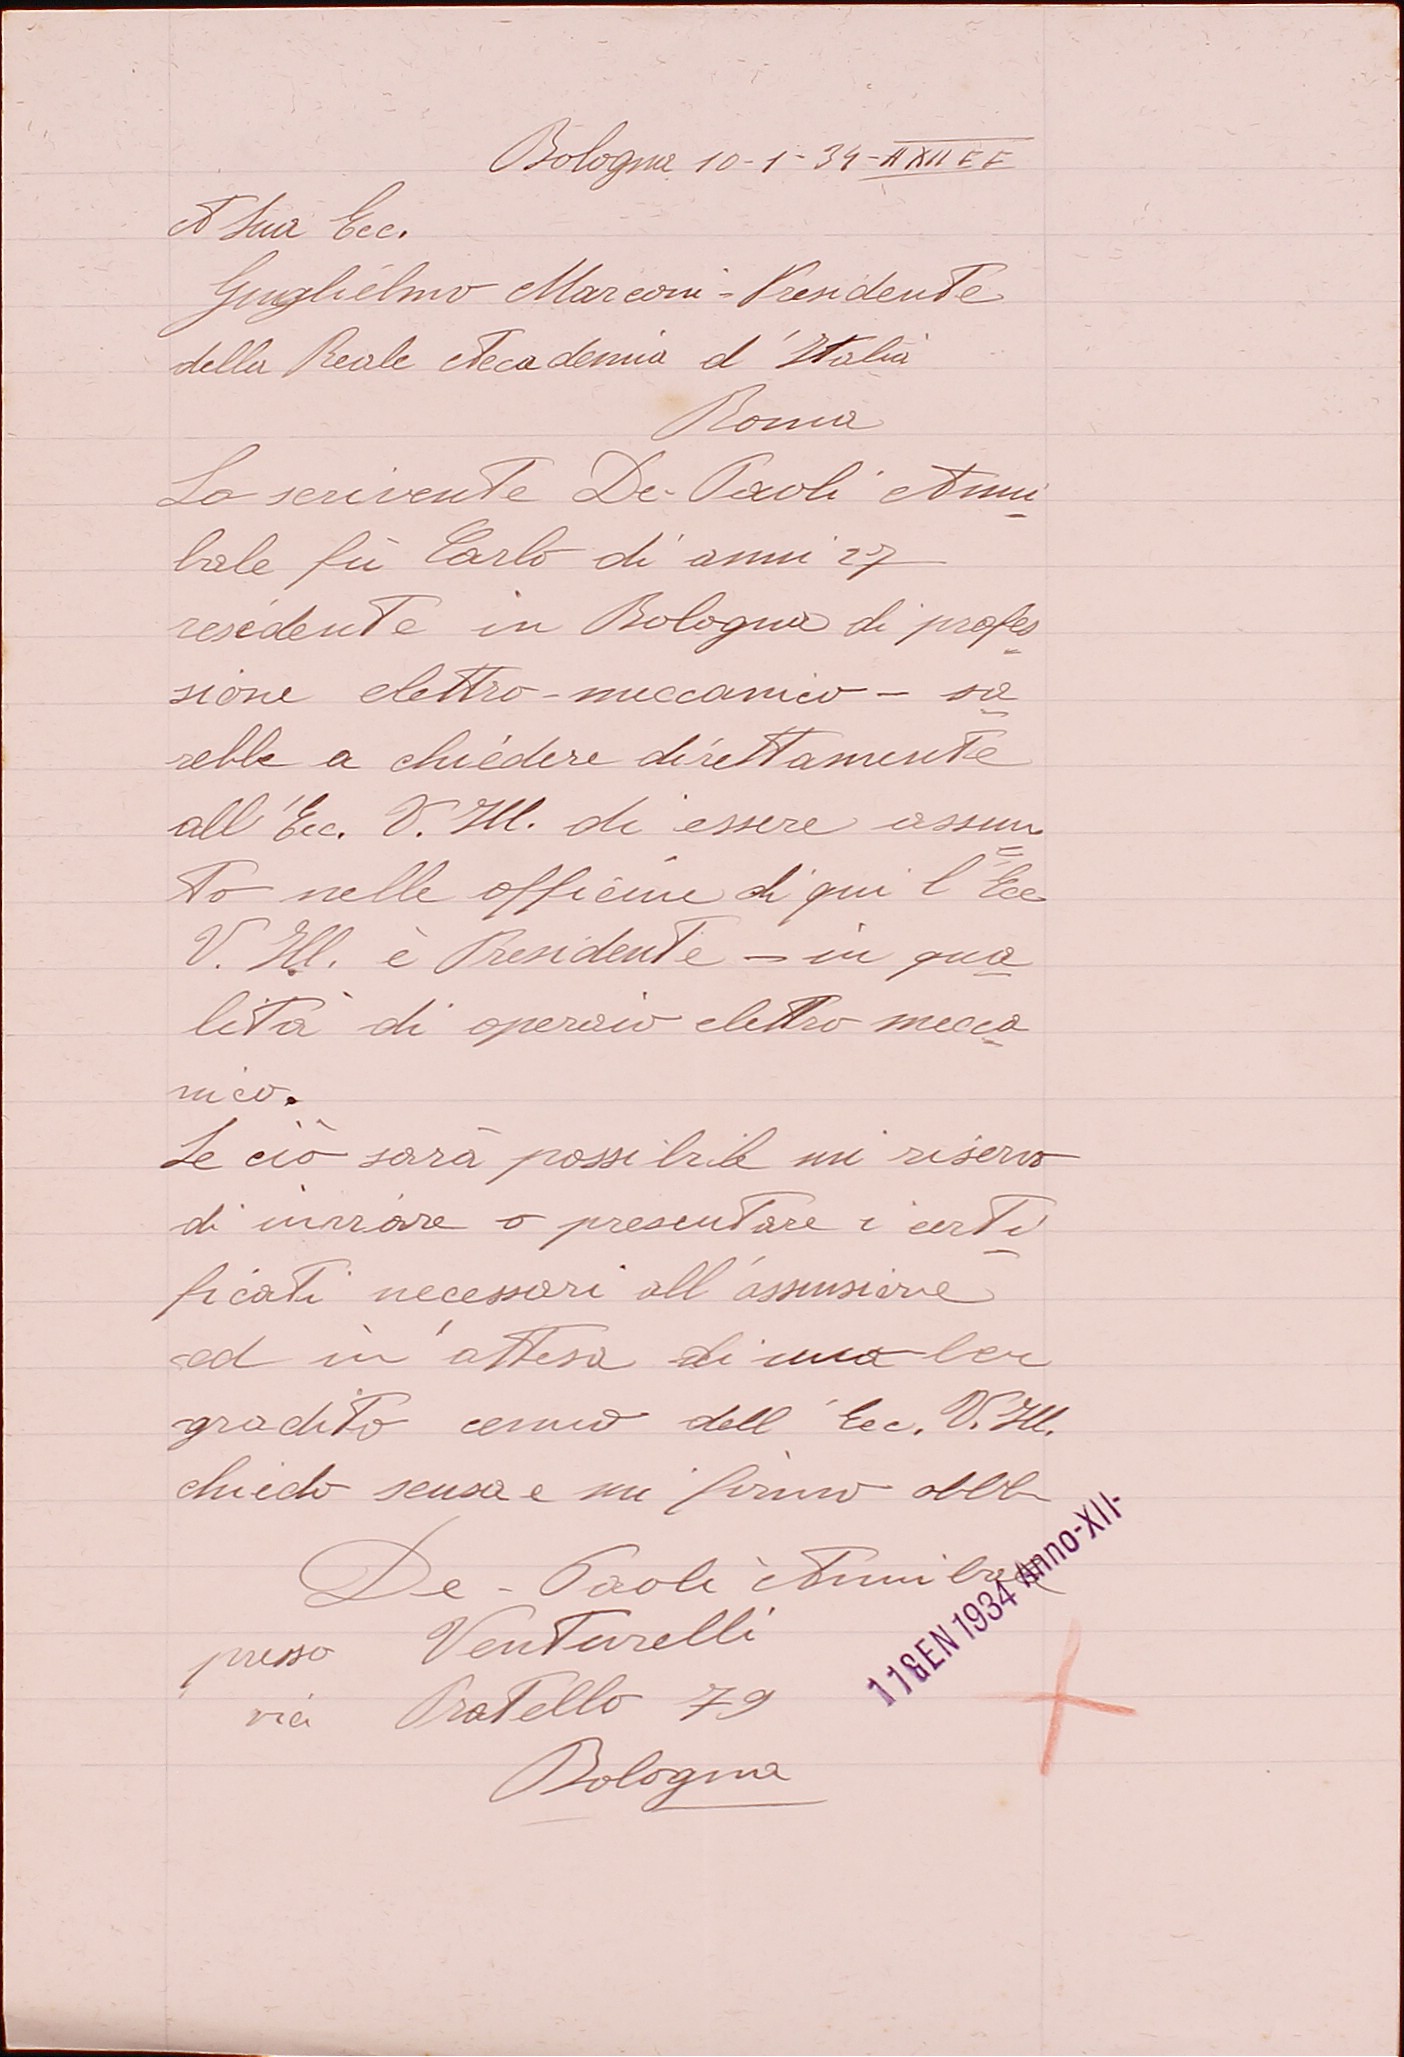 Bologna 10-1-34-AXII E F
A Sua Ecc.
Guglielmo Marconi - Presidente
della Reale Accademia d'Italia
Roma
Lo scrivente De-Paoli Anni
bale fù Carlo di anni 27
residente in Bologna di profes
sione elettro-meccanico - sa
rebbe a chiedere direttamente
all'Ecc. V. Ill. di essere assun
to nelle officine di qui l'Ecc
V. Ill. è Presidente - in qua
lità di operaio elettro mecca
nico.
Se ciò sarà possibile mi riservo
di inviare o presentare i certi
ficati necessari all'assunsione
ed in attesa di una ben
gradito cenno dell'Ecc. V. Ill.
chiedo scusa e mi firmo obb
De-Paoli Annibale
presso Venturelli
via Pratello 79
Bologna
11 GEN 1934 Anno-XII-